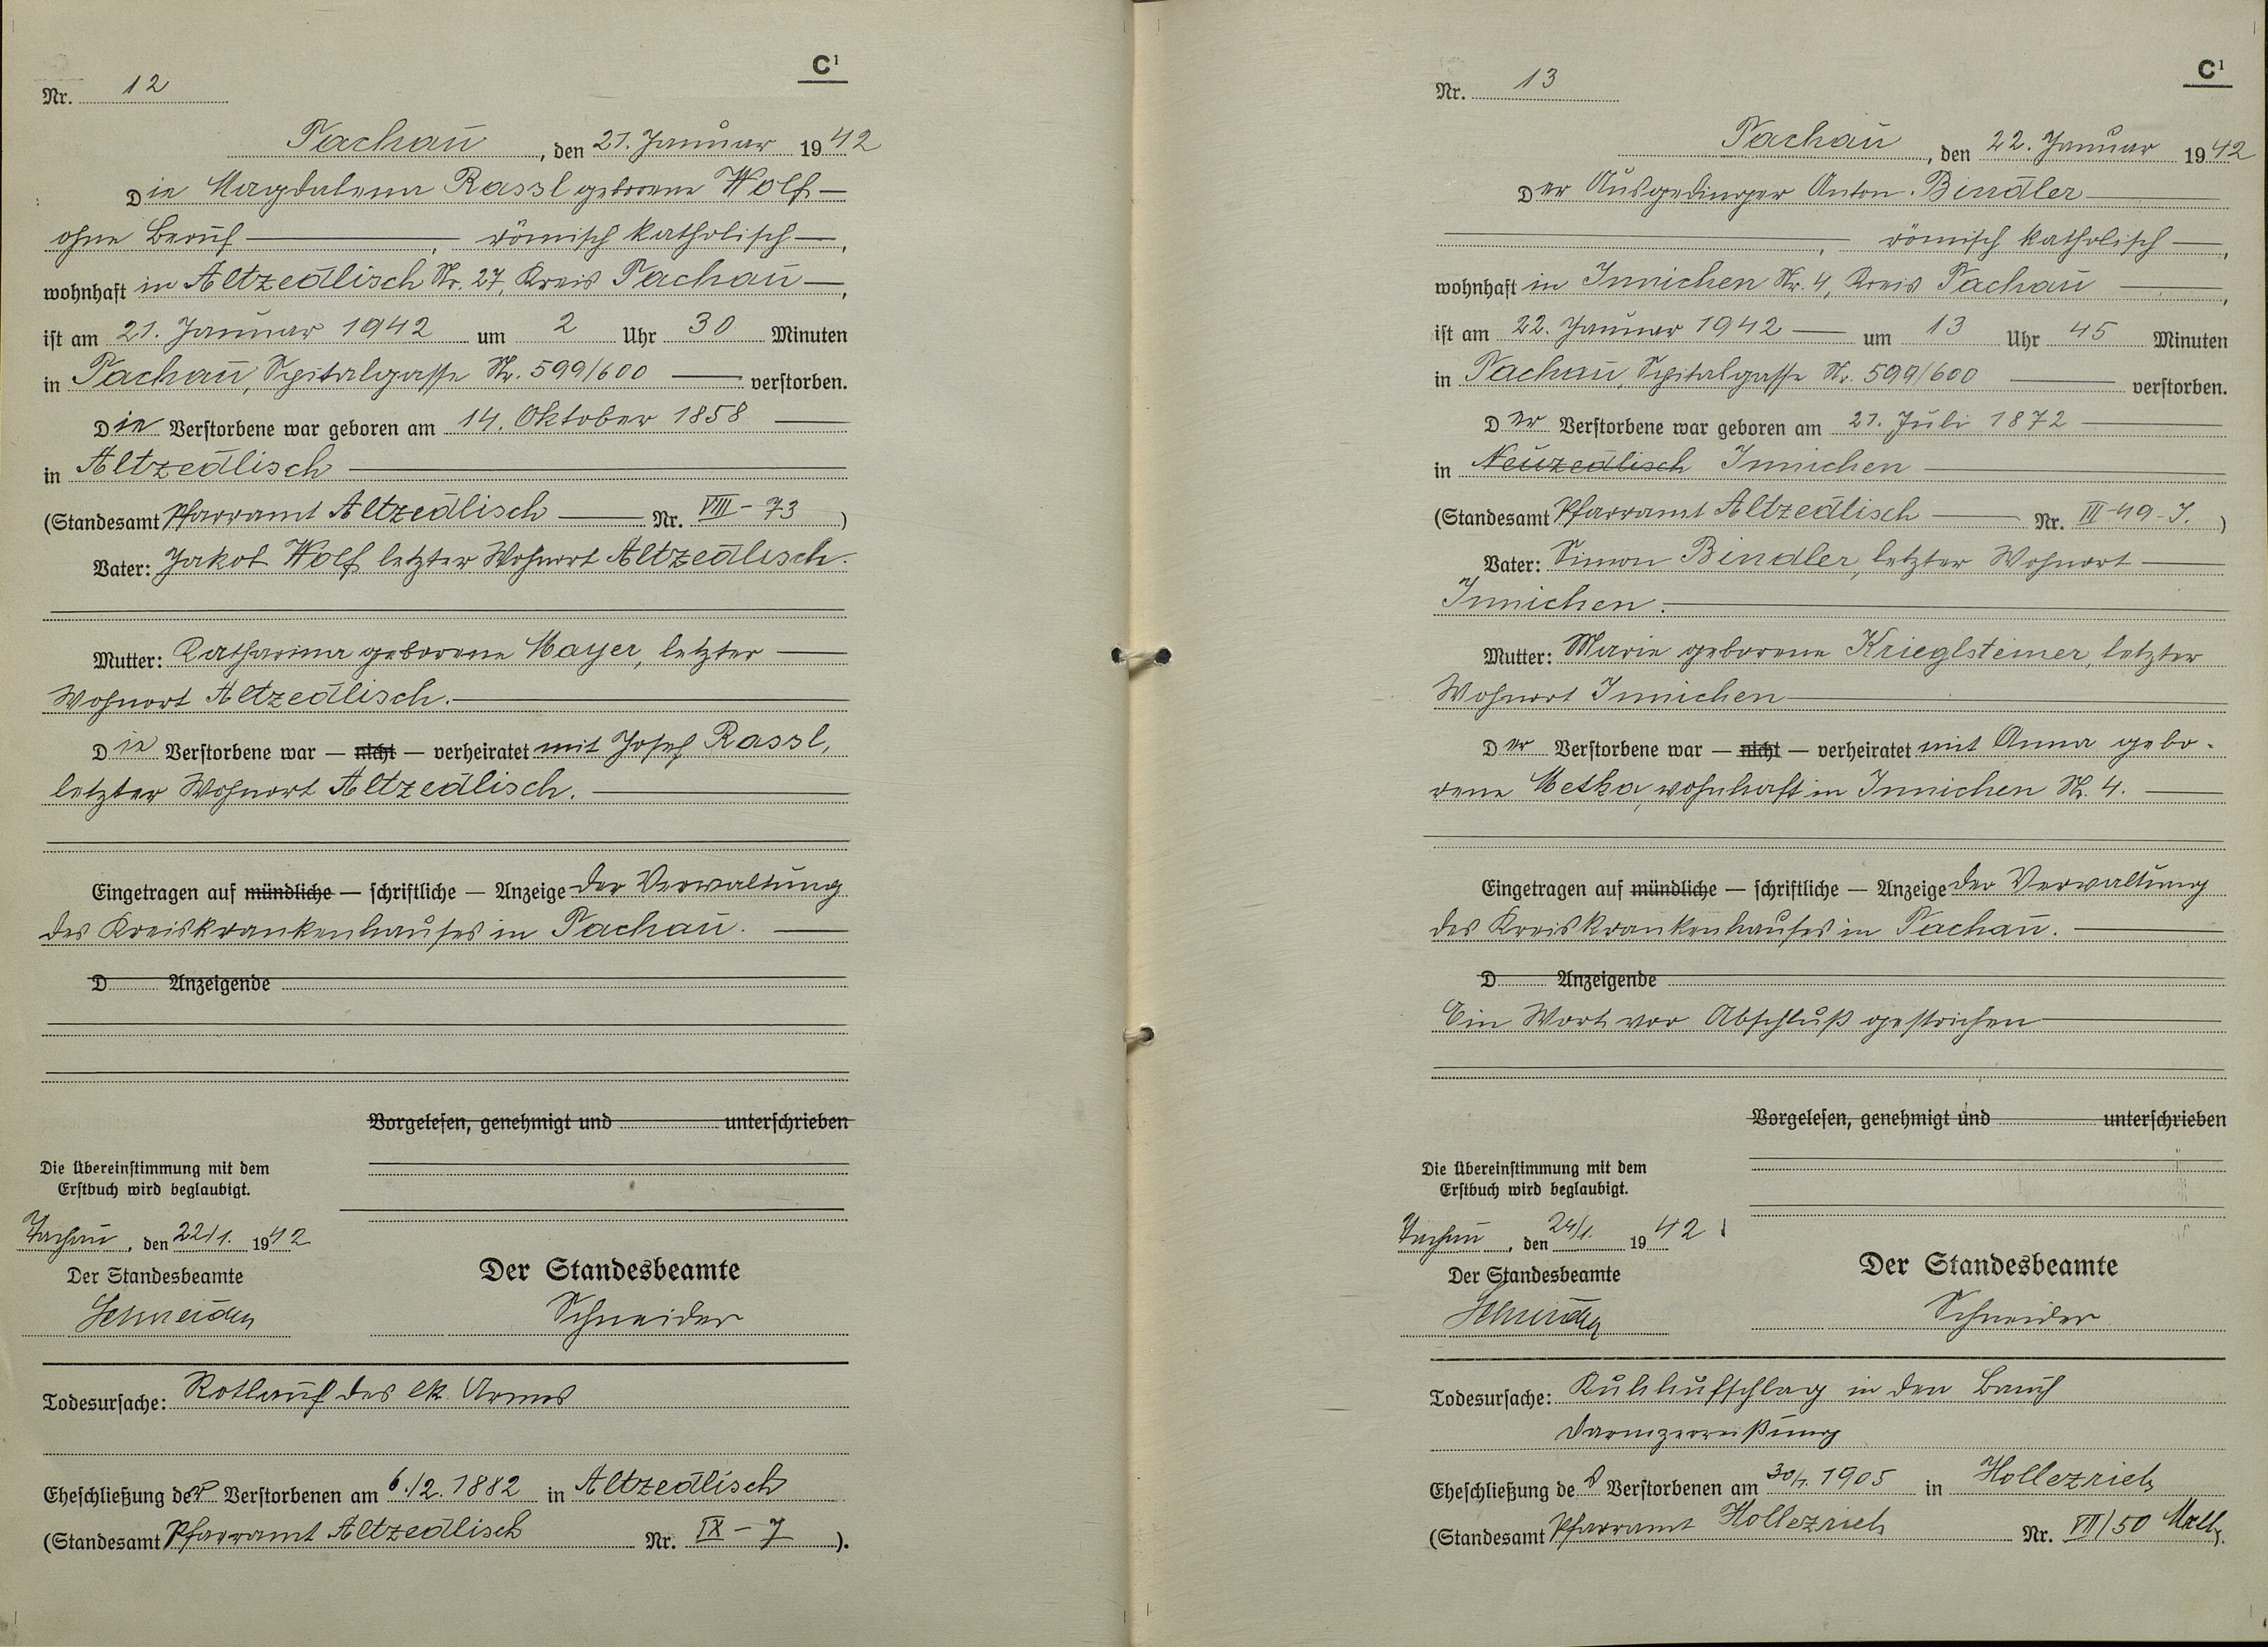 C¹
Nr. 12
Tachau, den 21. Januar 1942
Die Magdalena Rassl geborene Wolf —
ohne Beruf —, römisch katholisch —,
wohnhaft in Altzedlisch Nr. 27, Kreis Tachau —,
ist am 21. Januar 1942 um 2 Uhr 30 Minuten
in Tachau, Spitalgasse Nr. 599/600 — verstorben.
Die Verstorbene war geboren am 14. Oktober 1858 —
in Altzedlisch —
(Standesamt Pfarramt Altzedlisch — Nr. VIII - 73)
Vater: Jakob Wolf letzter Wohnort Altzedlisch.
Mutter: Katharina geborene Mayer, letzter —
Wohnort Altzedlisch. —
Die Verstorbene war — nicht — verheiratet mit Josef Rassl,
letzter Wohnort Altzedlisch. —
Eingetragen auf mündliche — schriftliche — Anzeige der Verwaltung
des Kreiskrankenhauses in Tachau. —
D Anzeigende
Vorgelesen, genehmigt und unterschrieben
Die Übereinstimmung mit dem
Erstbuch wird beglaubigt.
Tachau, den 22/1. 1942
Der Standesbeamte
Schneider
Der Standesbeamte
Schneider
Todesursache: Rotlauf des lk. Armes
Eheschließung der Verstorbenen am 6./2. 1882 in Altzedlisch
(Standesamt Pfarramt Altzedlisch Nr. IX - 7).
C¹
Nr. 13
Tachau, den 22. Januar 1942
Der Ausgedinger Anton Bindler —
—, römisch katholisch —,
wohnhaft in Innichen Nr. 4, Kreis Tachau —,
ist am 22. Januar 1942 — um 13 Uhr 45 Minuten
in Tachau, Spitalgasse Nr. 599/600 — verstorben.
Der Verstorbene war geboren am 21. Juli 1872 —
in Neuzedlisch Innichen —
(Standesamt Pfarramt Altzedlisch — Nr. III-49-J.)
Vater: Simon Bindler, letzter Wohnort —
Innichen. —
Mutter: Marie geborene Krieglsteiner, letzter
Wohnort Innichen —
Der Verstorbene war — nicht — verheiratet mit Anna gebo-
rene Metka, wohnhaft in Innichen Nr. 4. —
Eingetragen auf mündliche — schriftliche — Anzeige der Verwaltung
des Kreiskrankenhauses in Tachau. —
D Anzeigende
Ein Wort vor Abschluß gestrichen —
Vorgelesen, genehmigt und unterschrieben
Die Übereinstimmung mit dem
Erstbuch wird beglaubigt.
Tachau, den 24/1. 1942
Der Standesbeamte
Schneider
Der Standesbeamte
Schneider
Todesursache: Kuhhufschlag in den Bauch
Darmzerreißung
Eheschließung des Verstorbenen am 30/1. 1905 in Hollezrieb
(Standesamt Pfarramt Hollezrieb Nr. VII/50).